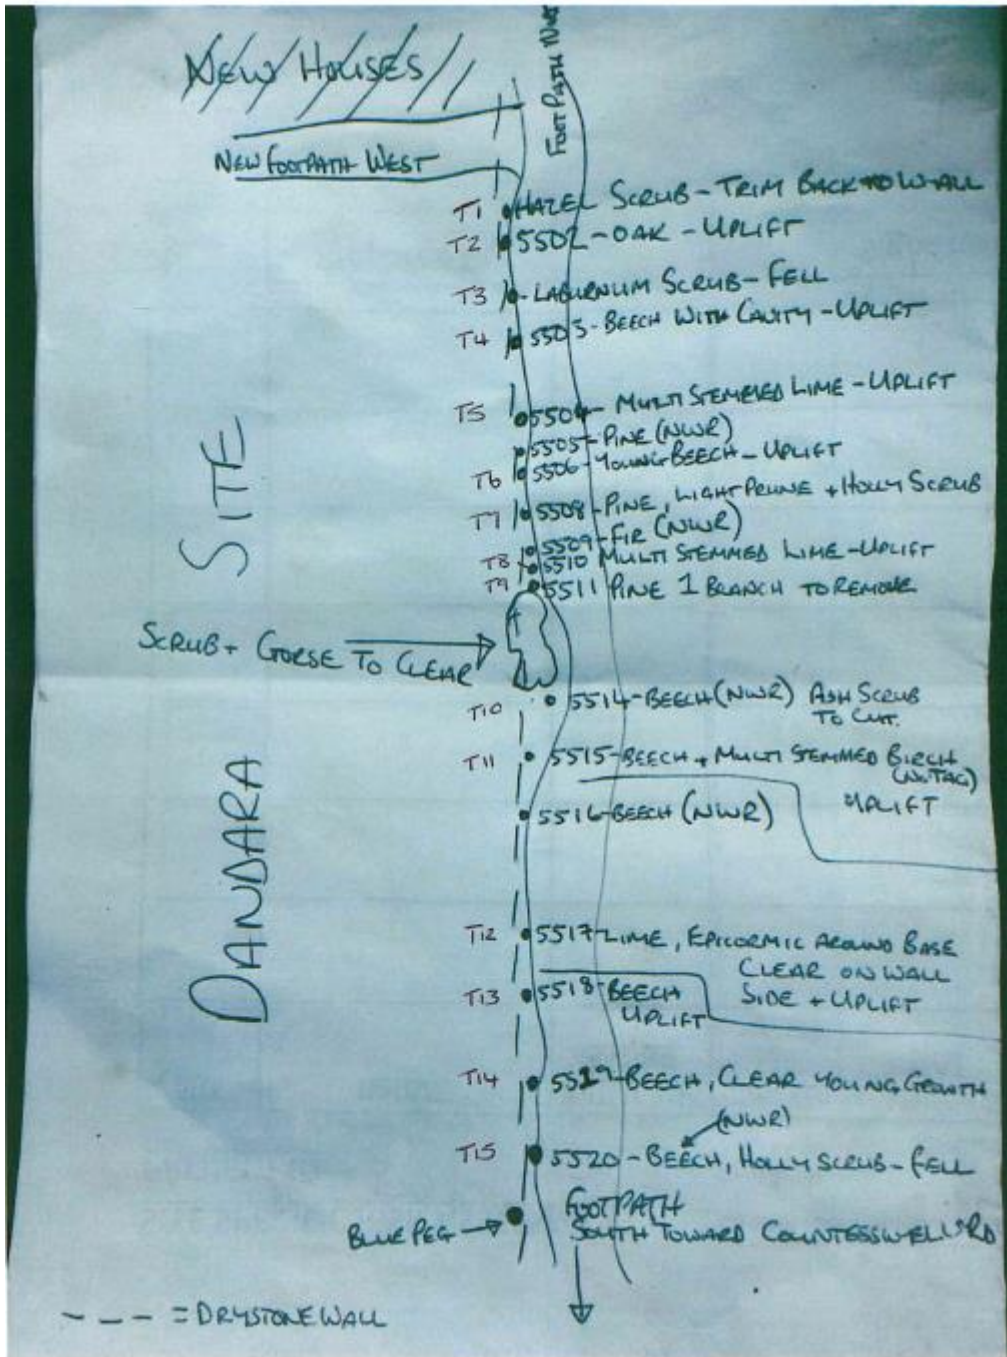 NEW HOUSES
FOOTPATH
NEW FOOTPATH WEST
T1 HAZEL SCRUB - TRIM BACK TO WALL
T2 5502 - OAK - UPLIFT
T3 LABURNUM SCRUB - FELL
T4 5503 - BEECH WITH CAVITY - UPLIFT
T5 5504 - MULTI STEMMED LIME - UPLIFT
5505 - PINE (NWR)
T6 5506 - YOUNG BEECH - UPLIFT
T7 5508 - PINE, LIGHT PRUNE + HOLLY SCRUB
5509 - FIR (NWR)
T8 5510 MULTI STEMMED LIME - UPLIFT
T9 5511 PINE 1 BRANCH TO REMOVE
SCRUB + GORSE TO CLEAR
T10 5514 - BEECH (NWR) ASH SCRUB
TO CUT.
T11 5515 - BEECH + MULTI STEMMED BIRCH
(NO TAG)
UPLIFT
5516 - BEECH (NWR)
T12 5517 - LIME, EPICORMIC AROUND BASE
CLEAR ON WALL
SIDE + UPLIFT
T13 5518 - BEECH
UPLIFT
T14 5519 - BEECH, CLEAR YOUNG GROWTH
(NWR)
T15 5520 - BEECH, HOLLY SCRUB - FELL
BLUE PEG
FOOTPATH
SOUTH TOWARD COUNTESSWELLS RD
DANDARA SITE
--- = DRYSTONE WALL